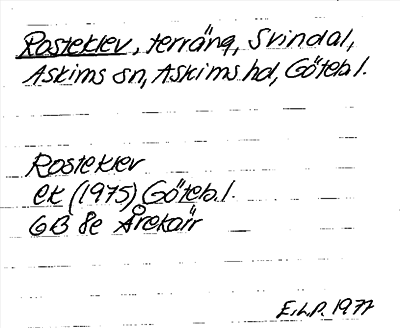 Rosteklev, terräng, Svindal,
Askims sn, Askims hd, Göteb. l.
Rosteklev
ek (1975) Göteb. l.
6B 8e Årekärr
E.L.P. 1977